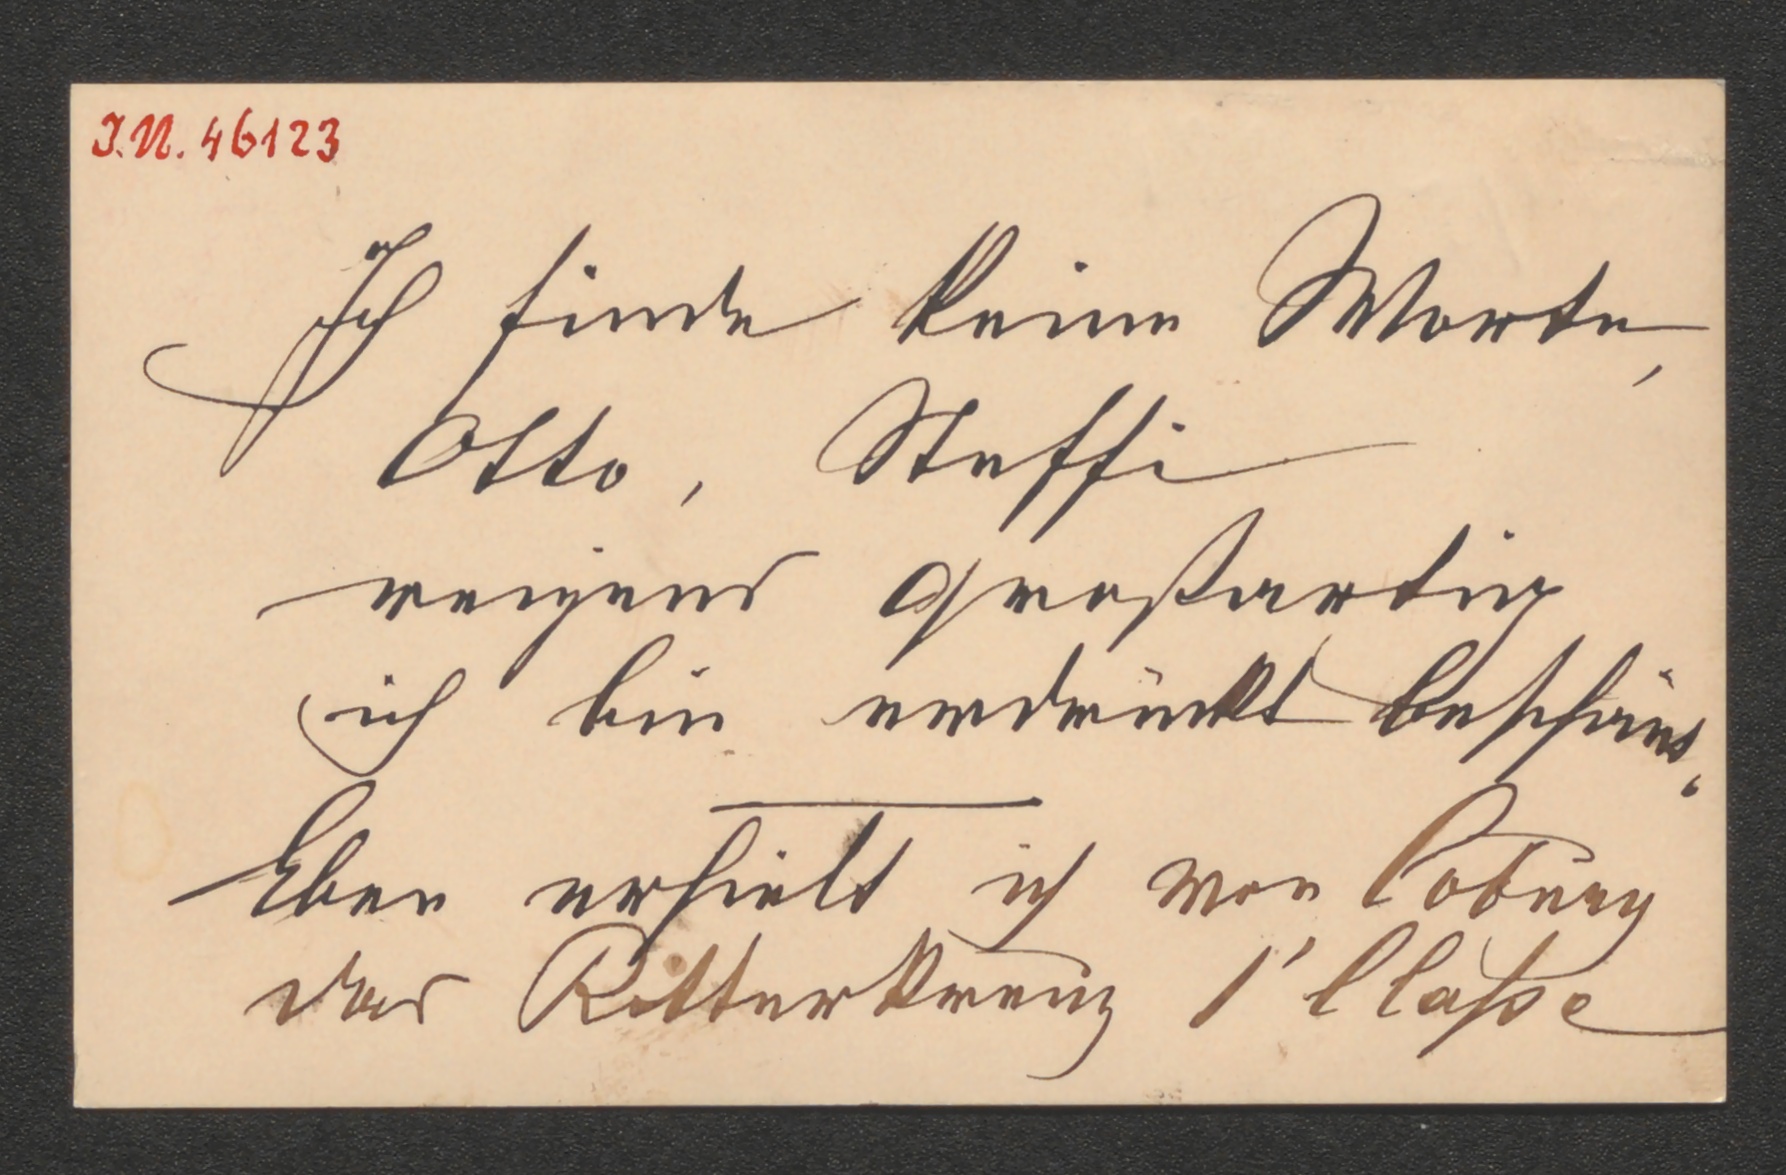 I.N. 46123
Ich finde keine Worte,
Otto, Steffi
reizend großartig
ich bin erdrückt beschämt.
Eben erhielt ich von Coburg
das Ritterkreuz 1' Classe